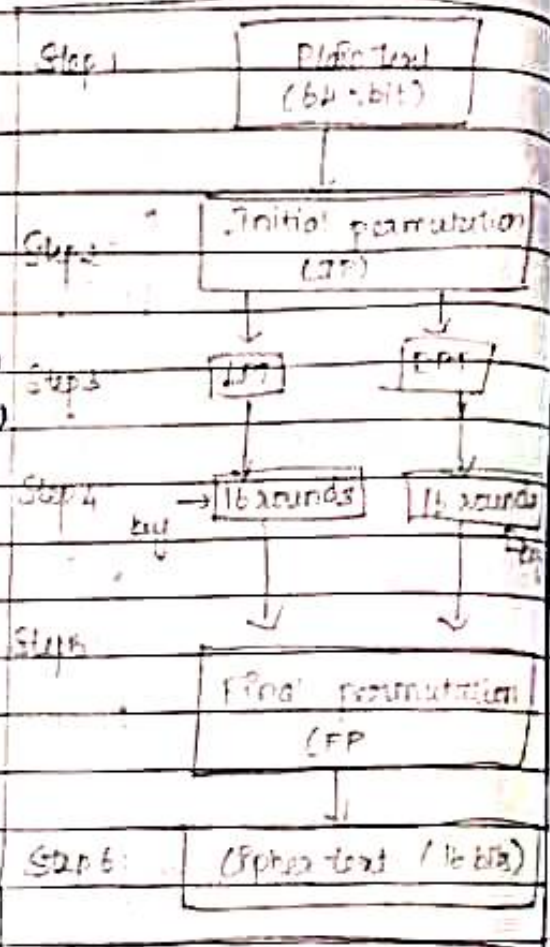 Step 1
Plain text
(64-bit)
Step 2
Initial permutation
(IP)
Step 3
LPT
Step 4
16 rounds
16 rounds
key
key
Step
Final permutation
(FP
Step 6:
Cipher text (16 bits)